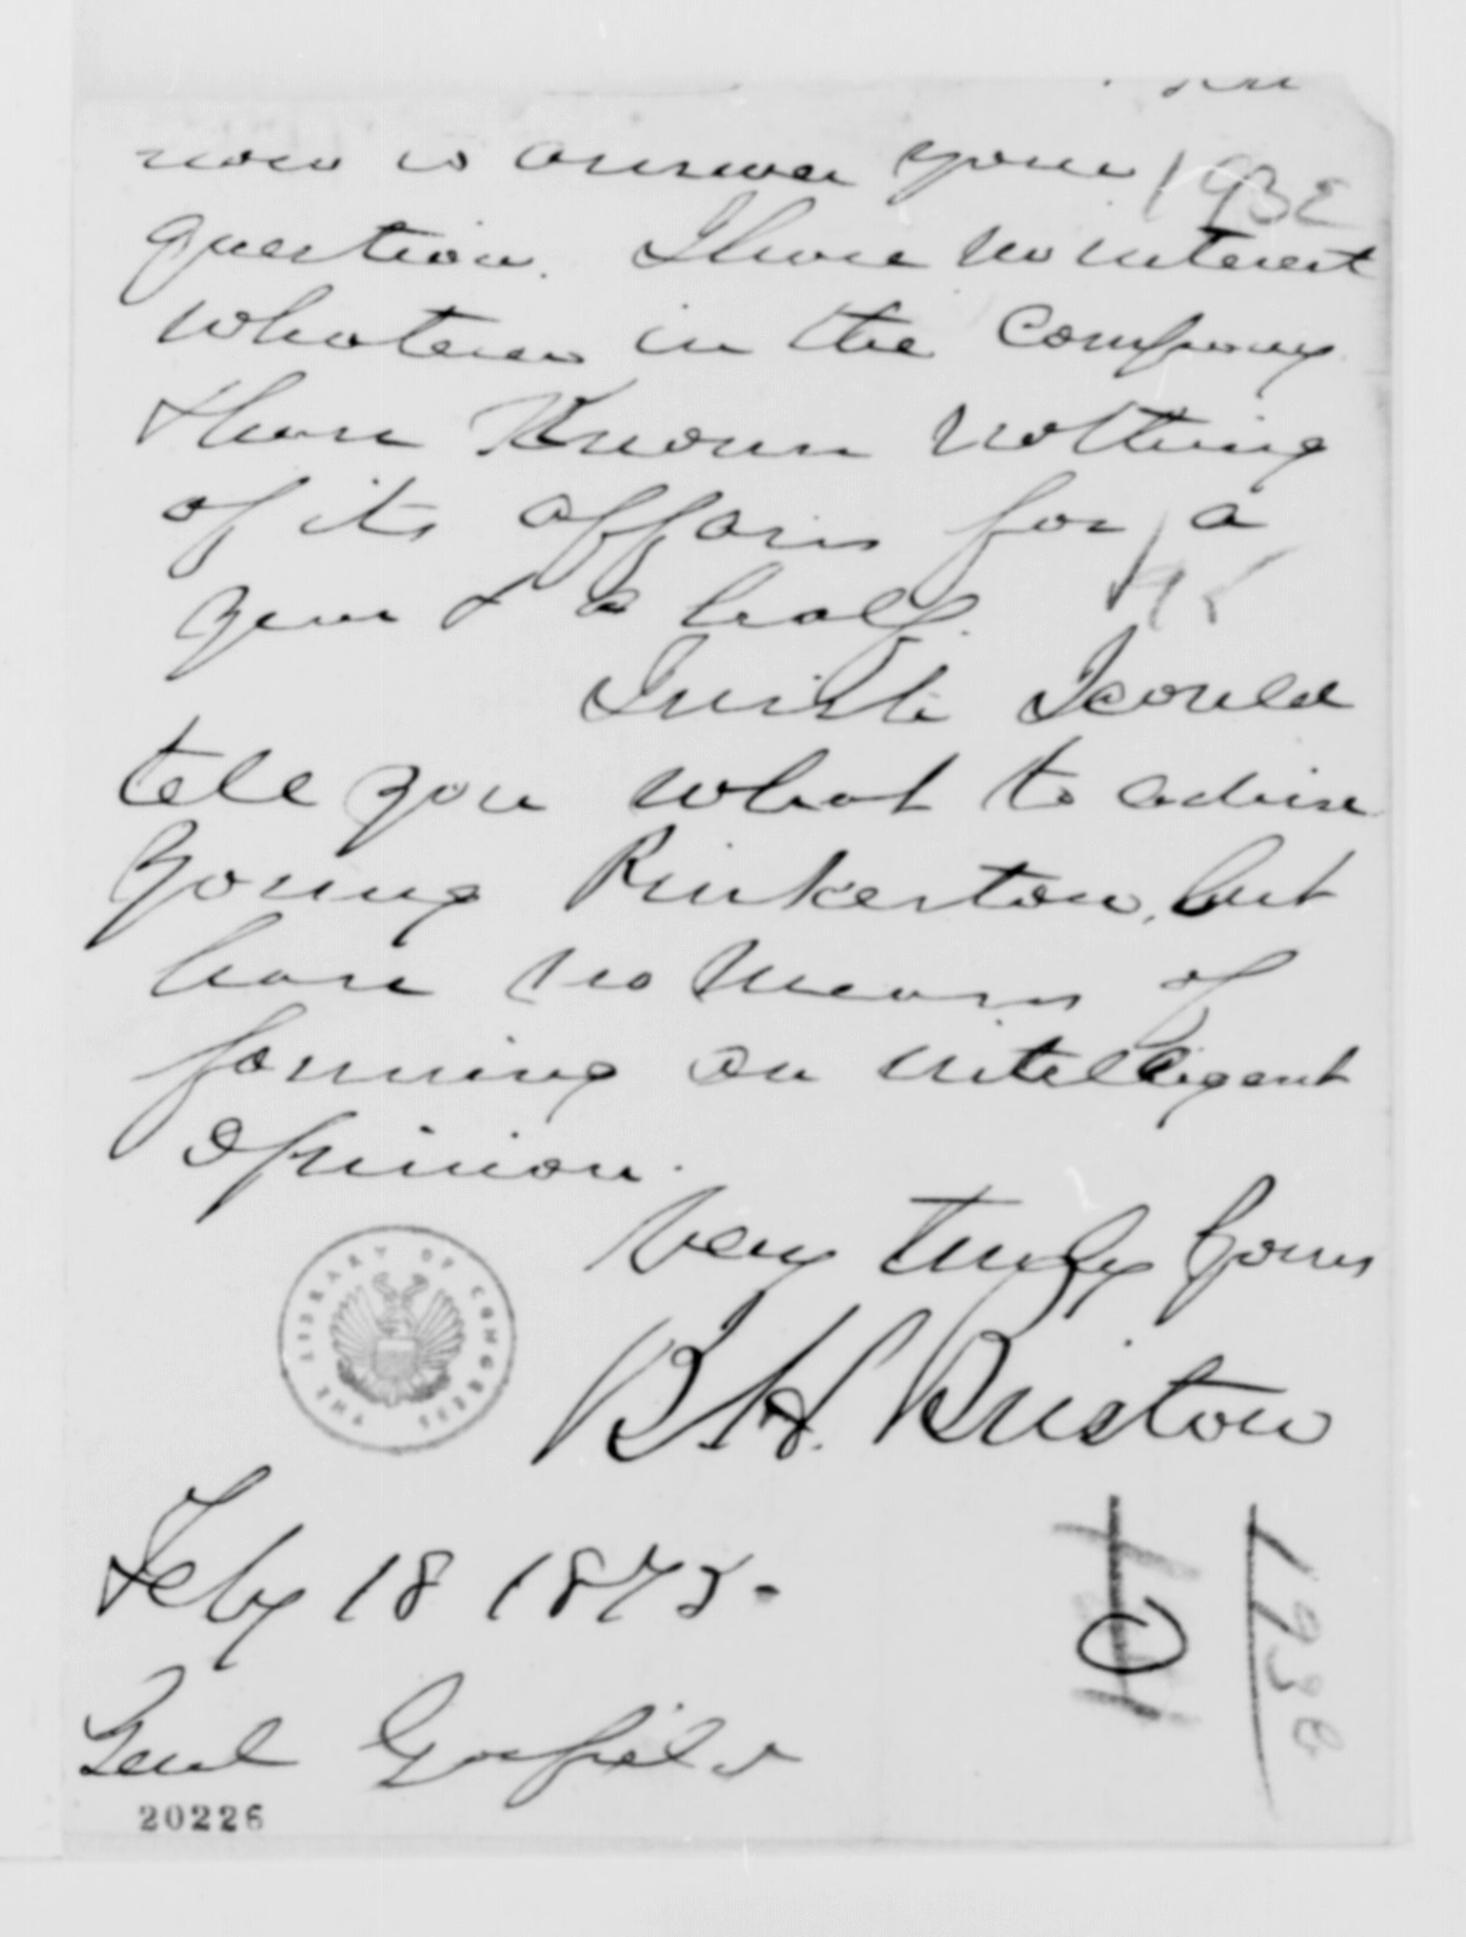 now to answer your
1938
question. I have no interest
whatever in the Company
& have known nothing
of its affairs for a
year & a half.
I wish I could
tell you what to advise
young Pinkerton, but
have no means of
forming an intelligent
opinion.
Very truly Yours
B. H. Bristow
THE LIBRARY OF CONGRESS
Feby 18 1875.
Genl Garfield
20226
1938